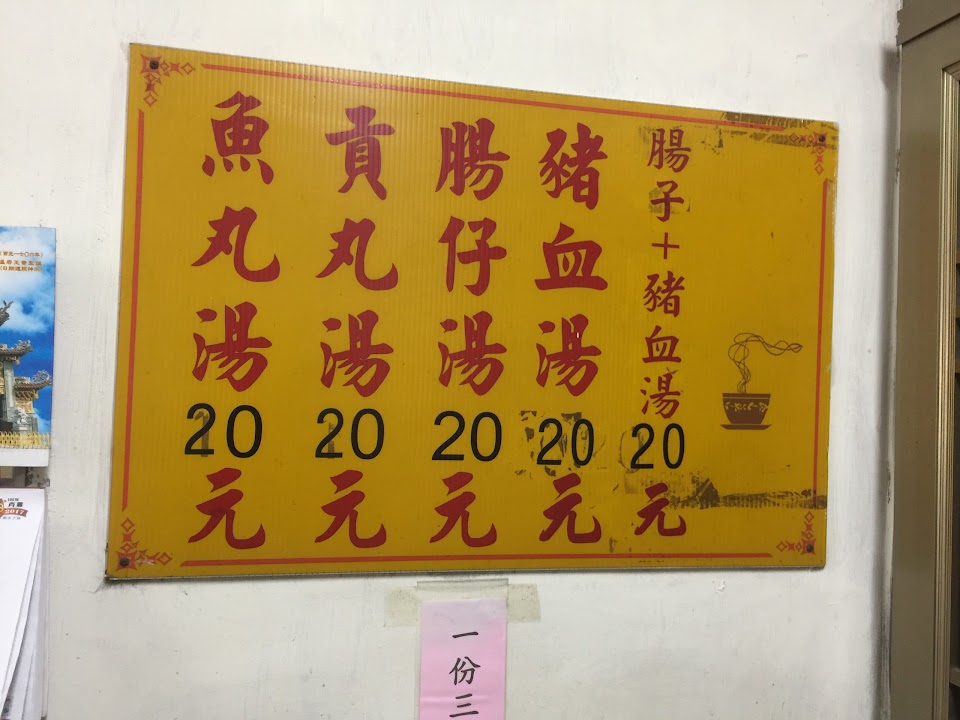 腸子+豬血湯20元
豬血湯20元
腸仔湯20元
貢丸湯20元
魚丸湯20元
一份三
2017